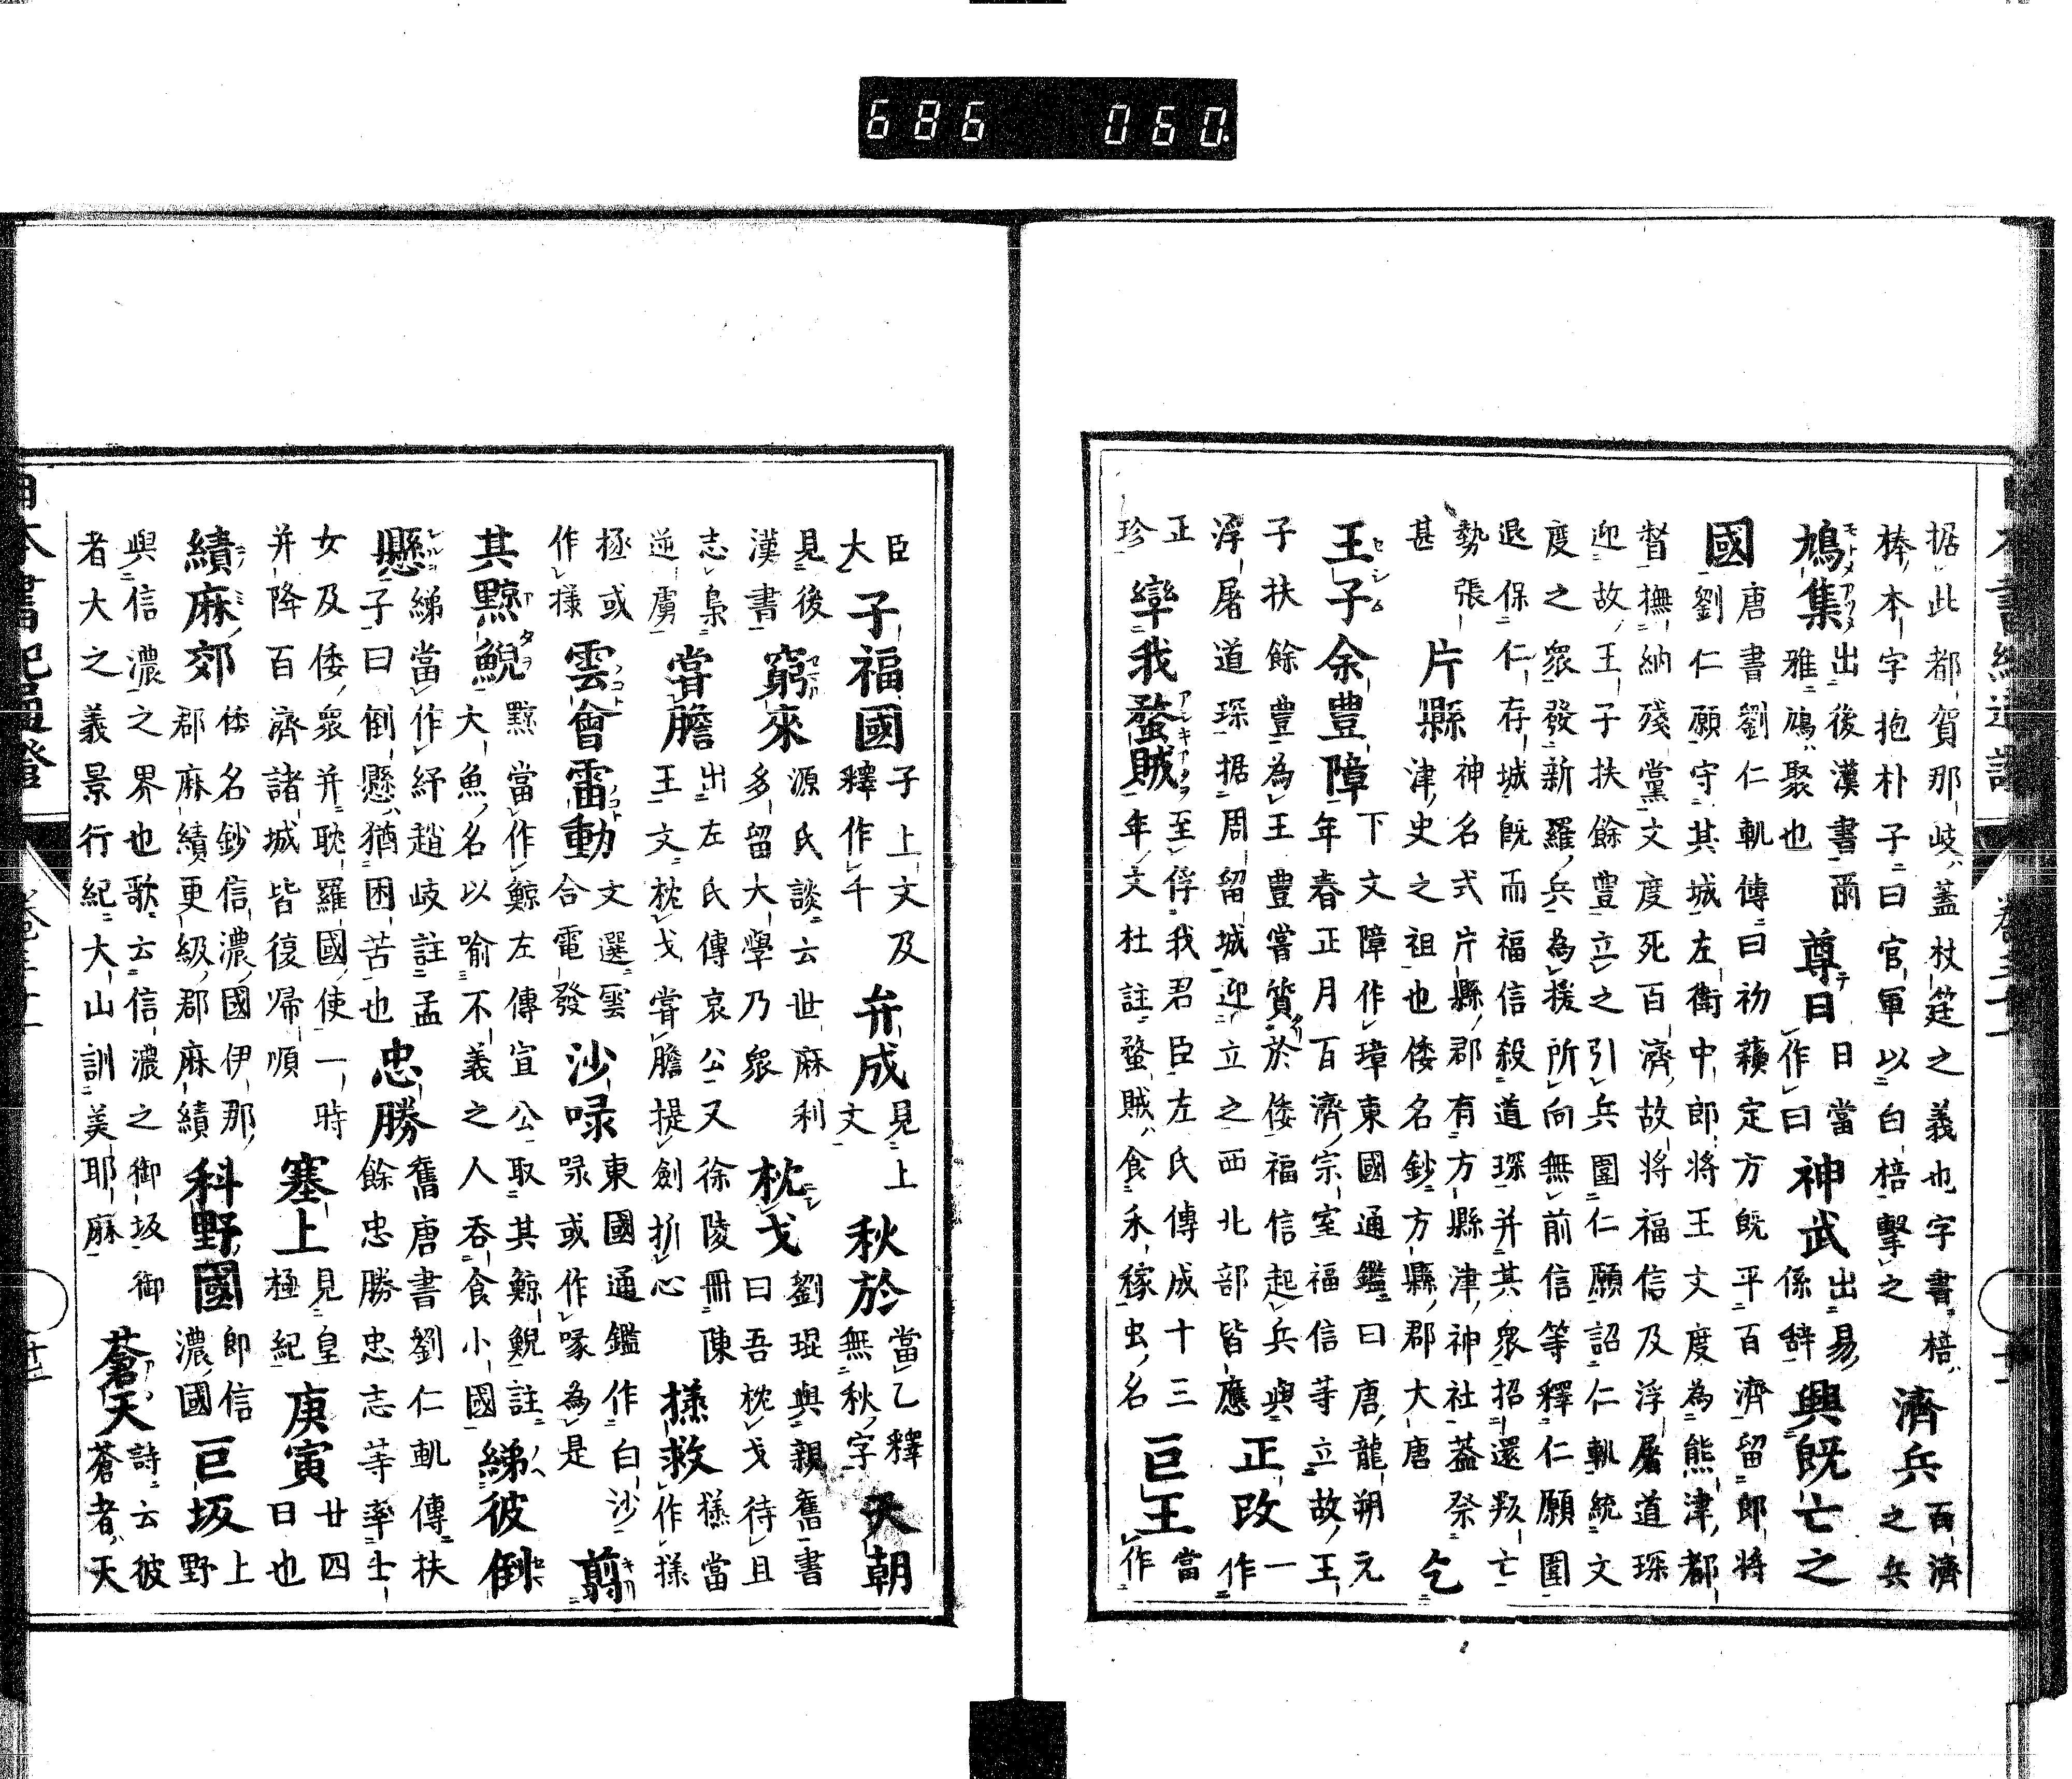 686 060
据此都賀那岐蓋杖筳之義也字書棓 濟兵 百濟
棒本字抱朴子曰官軍以白棓擊之 之兵
鳩集 出後漢書爾雅鳩聚也 尊日 日當作曰 神武 出易係辞 興既亡之
國 唐書劉仁軌傳曰初蘓定方既平百濟留郎將
劉仁願守其城左衛中郎將王文度為熊津都
督撫納殘黨文度死百濟故將福信及浮屠道琛
迎故王子扶餘豊立之引兵圍仁願詔仁軌統文
度之眾發新羅兵為援所向無前信等釋仁願圍
退保仁存城既而福信殺道琛并其眾招還叛亡
勢張甚 片縣 神名式片縣郡有方縣津神社葢祭 乞
津史之祖也倭名鈔方縣郡大唐
王子余豊障 下文障作璋東國通鑑曰唐龍朔元
年春正月百濟宗室福信等立故王
子扶餘豊為王豊嘗質於倭福信起兵與 正改 一
浮屠道琛据周留城迎立之西北部皆應 作
正珍 㝈我蝥賊 至俘我君臣左氏傳成十三 巨王 當
年文杜註蝥賊食禾稼虫名 作
臣大 子福國 子上文及釋作千 弁成 見上文 秋於 當乙釋無秋字 天朝
見後漢書 窮來 源氏談云世麻利 枕戈 劉琨與親舊書
多留大學乃眾 曰吾枕戈待且
志梟逆虜 嘗膽 出左氏傳哀公又徐陵冊陳 㨾救 㨾當
王文枕戈嘗膽提劍扸心 作㨾
拯或作㨾 雲會雷動 文選雲合電發 沙㖨 東國通鑑作白沙 翦
㖨或作喙為是
其黥鯢 黥當作鯨左傳宣公取其鯨鯢註 綈彼倒
大魚名以喻不義之人吞食小國
懸 綈當作紓趙岐註孟 忠勝 舊唐書劉仁軌傳扶
子曰倒懸猶困苦也 餘忠勝忠志等率士
女及倭眾并耽羅國使一時 塞上 見皇極紀 庚寅 廿四
并降百濟諸城皆復帰順 日也
績麻郊 倭名鈔信濃國伊那 科野國 即信濃國 巨坂 上
郡麻績更級郡麻績 野
與信濃之界也歌云信濃之御坂御 蒼天 詩云彼
者大之義景行紀大山訓美耶麻 蒼者天